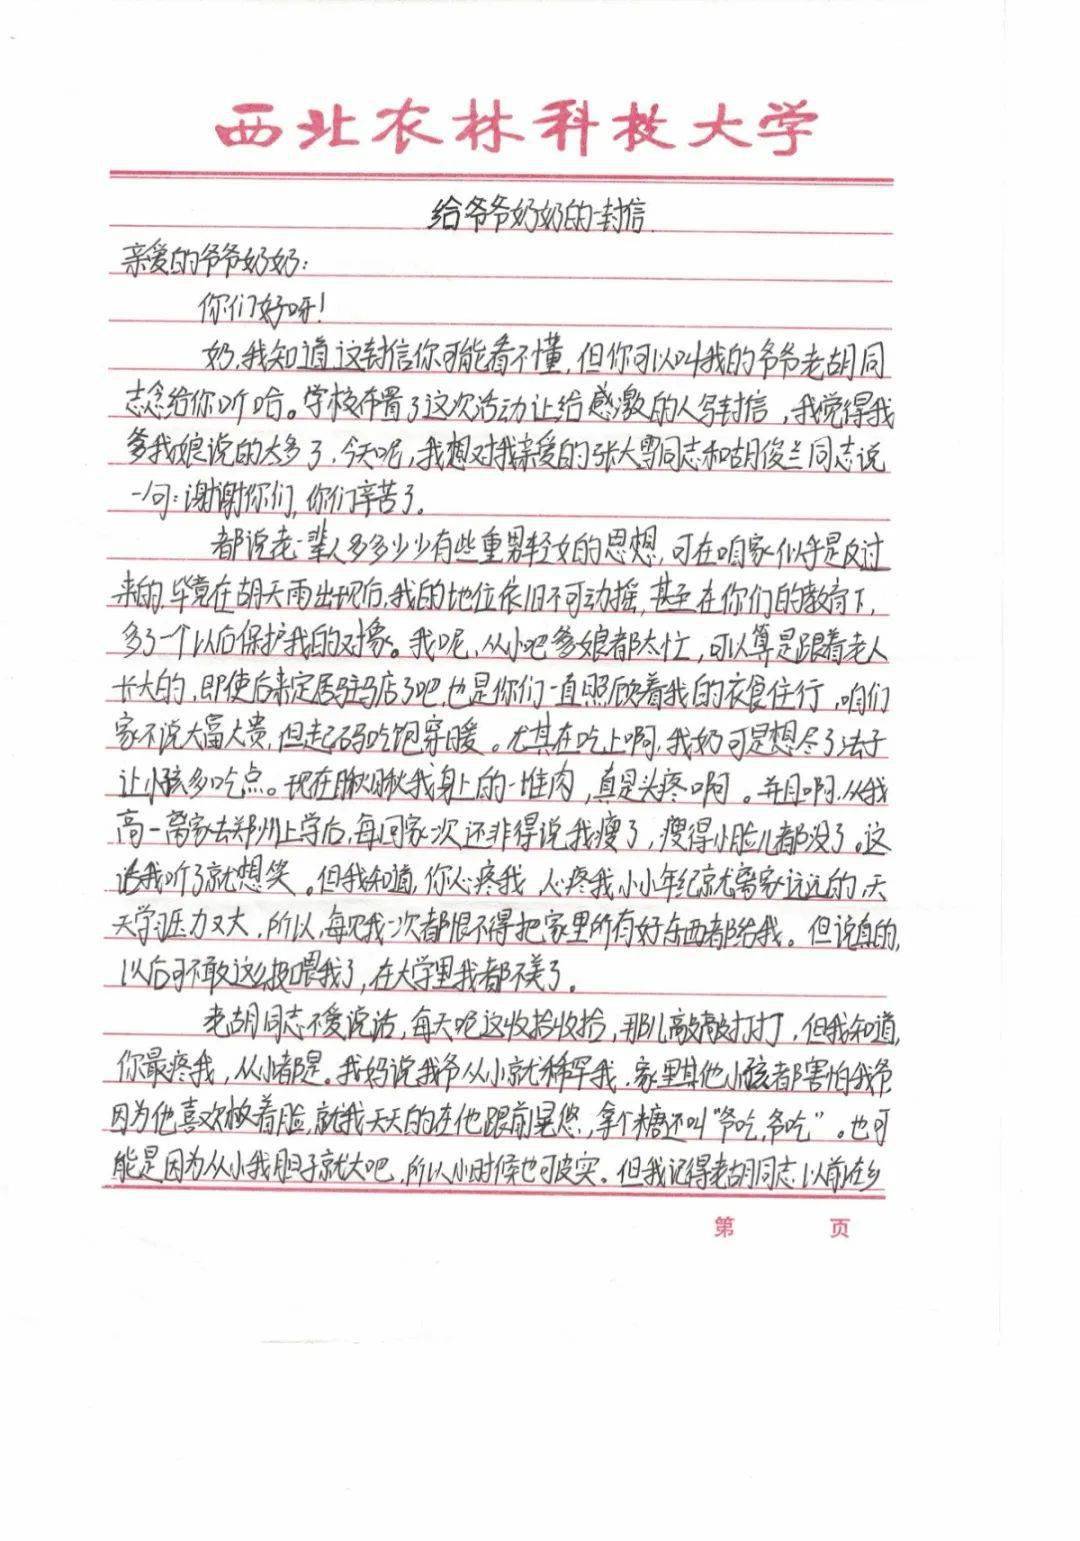 西北农林科技大学
给爷爷奶奶的一封信
亲爱的爷爷奶奶:
你们好呀!
奶,我知道这封信你可能看不懂,但你可以叫我的爷爷老胡同
志念给你听哈。学校布置了这次活动让给感激的人写封信,我觉得我
爹我娘说的太多了,今天呢,我想对我亲爱的张大雪同志和胡俊兰同志说
一句:谢谢你们,你们辛苦了。
都说老一辈人多多少少有些重男轻女的思想,可在咱家似乎是反过
来的,毕竟在胡天雨出现后,我的地位依旧不可动摇,甚至在你们的教育下,
多了一个以后保护我的对象。我呢,从小吧爹娘都太忙,可以算是跟着老人
长大的,即使后来定居驻马店了吧,也是你们一直照顾着我的衣食住行,咱们
家不说大富大贵,但起码吃饱穿暖。尤其在吃上啊,我奶可是想尽了法子
让小孩多吃点。现在瞅瞅我身上的一堆肉,真是头疼啊。并且啊,从我
高一离家去郑州上学后,每回家一次还非得说我瘦了,瘦得小脸儿都没了。这
话我听了就想笑。但我知道,你心疼我,心疼我小小年纪就离家远远的,天
天学习压力又大,所以,每见我一次都恨不得把家里所有好东西都给我。但说真的,
以后可不敢这么投喂我了,在大学里我都不美了。
老胡同志不爱说话,每天呢这收拾收拾,那儿敲敲打打,但我知道,
你最疼我,从小都是。我妈说我爷从小就稀罕我,家里其他小孩都害怕我爷
因为他喜欢板着脸,就我天天的在他跟前晃悠,拿个糖还叫“爷吃,爷吃”。也可
能是因为从小我胆子就大吧,所以小时候也可皮实。但我记得老胡同志以前在乡
第 页